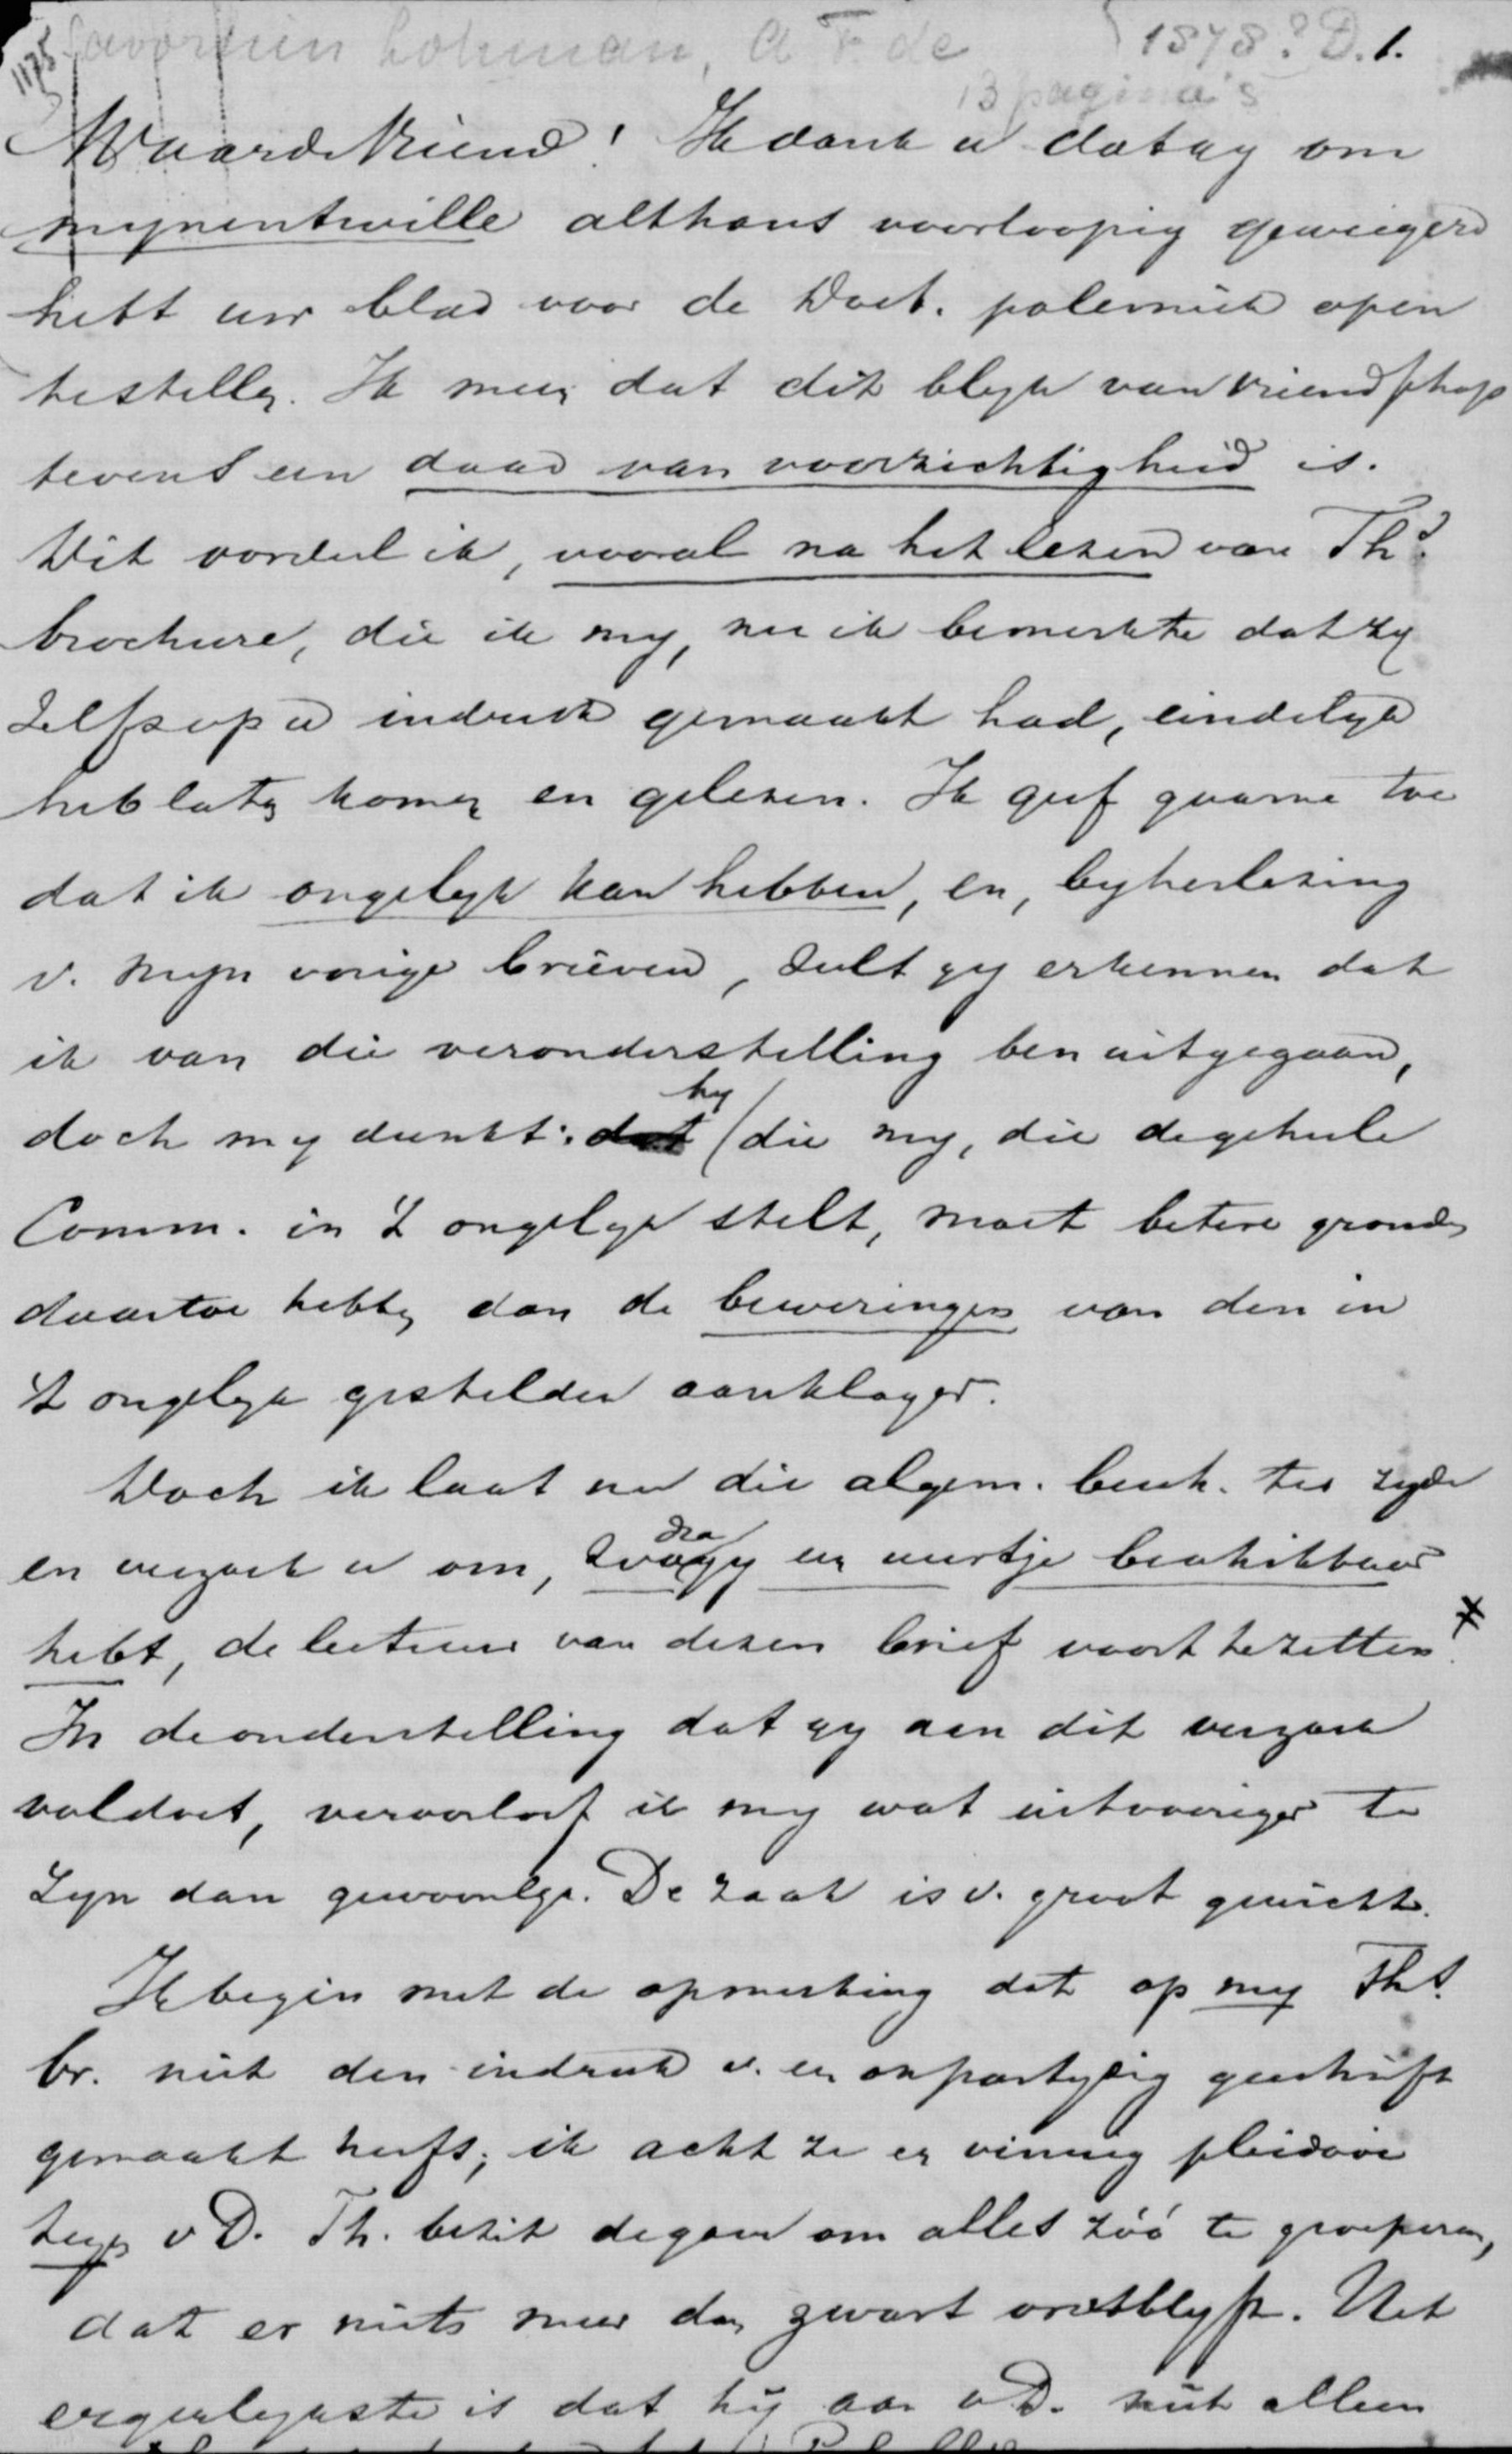 Savornin Lohman, A F. de 1878? D. 1.
1175
13 pagina's
Waarde Vriend! Ik dank u dat gy om
mynentwille althans voorloopig geweigerd
hebt uw blad voor de Doct. polemiek open
te stellen. Ik meen dat dit blyk van vriendschap
tevens een daad van voorzichtigheid is.
Dit oordeel ik, vooral na het lezen van Th's.
brochure, die ik my, nu ik bemerkte dat zy
zelfs op u indruk gemaakt had, eindelyk
heb laten komen en gelezen. Ik geef gaarne toe
dat ik ongelyk kan hebben, en, by herlezing
v. myn vorige brieven, zult gy erkennen dat
ik van die veronderstelling ben uitgegaan,
doch my dunkt: hy (die my, die de geheele
Comm. in 't ongelyk stelt, moet betere gronden
daartoe hebben dan de beweringen van den in
't ongelyk gestelden aanklager.
Doch ik laat nu die algem. besch. ter zyde
en verzoek u om, zodra gy een uurtje beschikbaar
hebt, de lectuur van dezen brief voort te zetten. *
In de onderstelling dat gy aan dit verzoek
voldoet, veroorloof ik my wat uitvoeriger te
zyn dan gewoonlyk. De zaak is v. groot gewicht.
Ik begin met de opmerking dat op my Th's.
br. niet den indruk v. een onpartydig geschrift
gemaakt heeft; ik acht ze een vinnig pleidooi
tegen v D. Th. bezit de gave om alles zóó te groeperen,
dat er niets meer dan zwart overblyft. Het
ergerlykste is dat hy aan v D. niet alleen